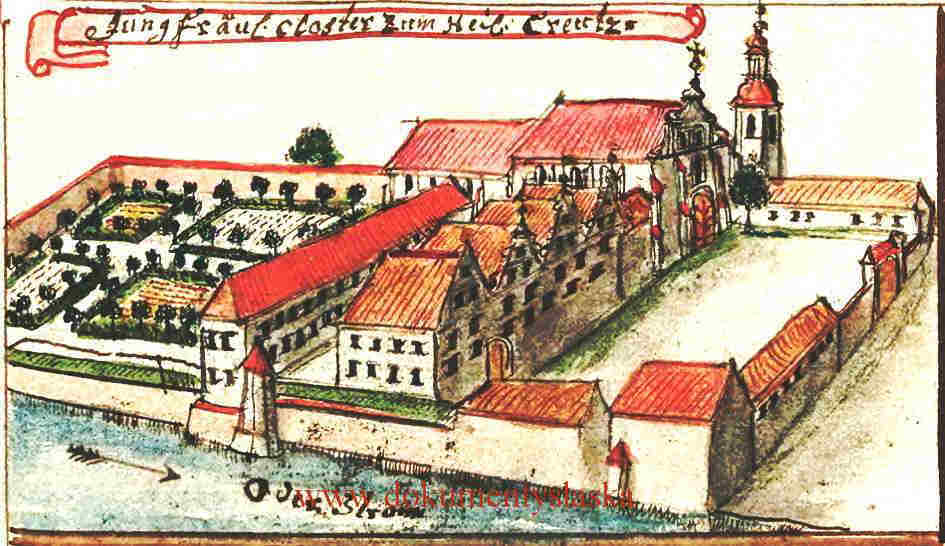 Jungfräul. Closter zum Heil. Creutz.
www.dokumentyslaska